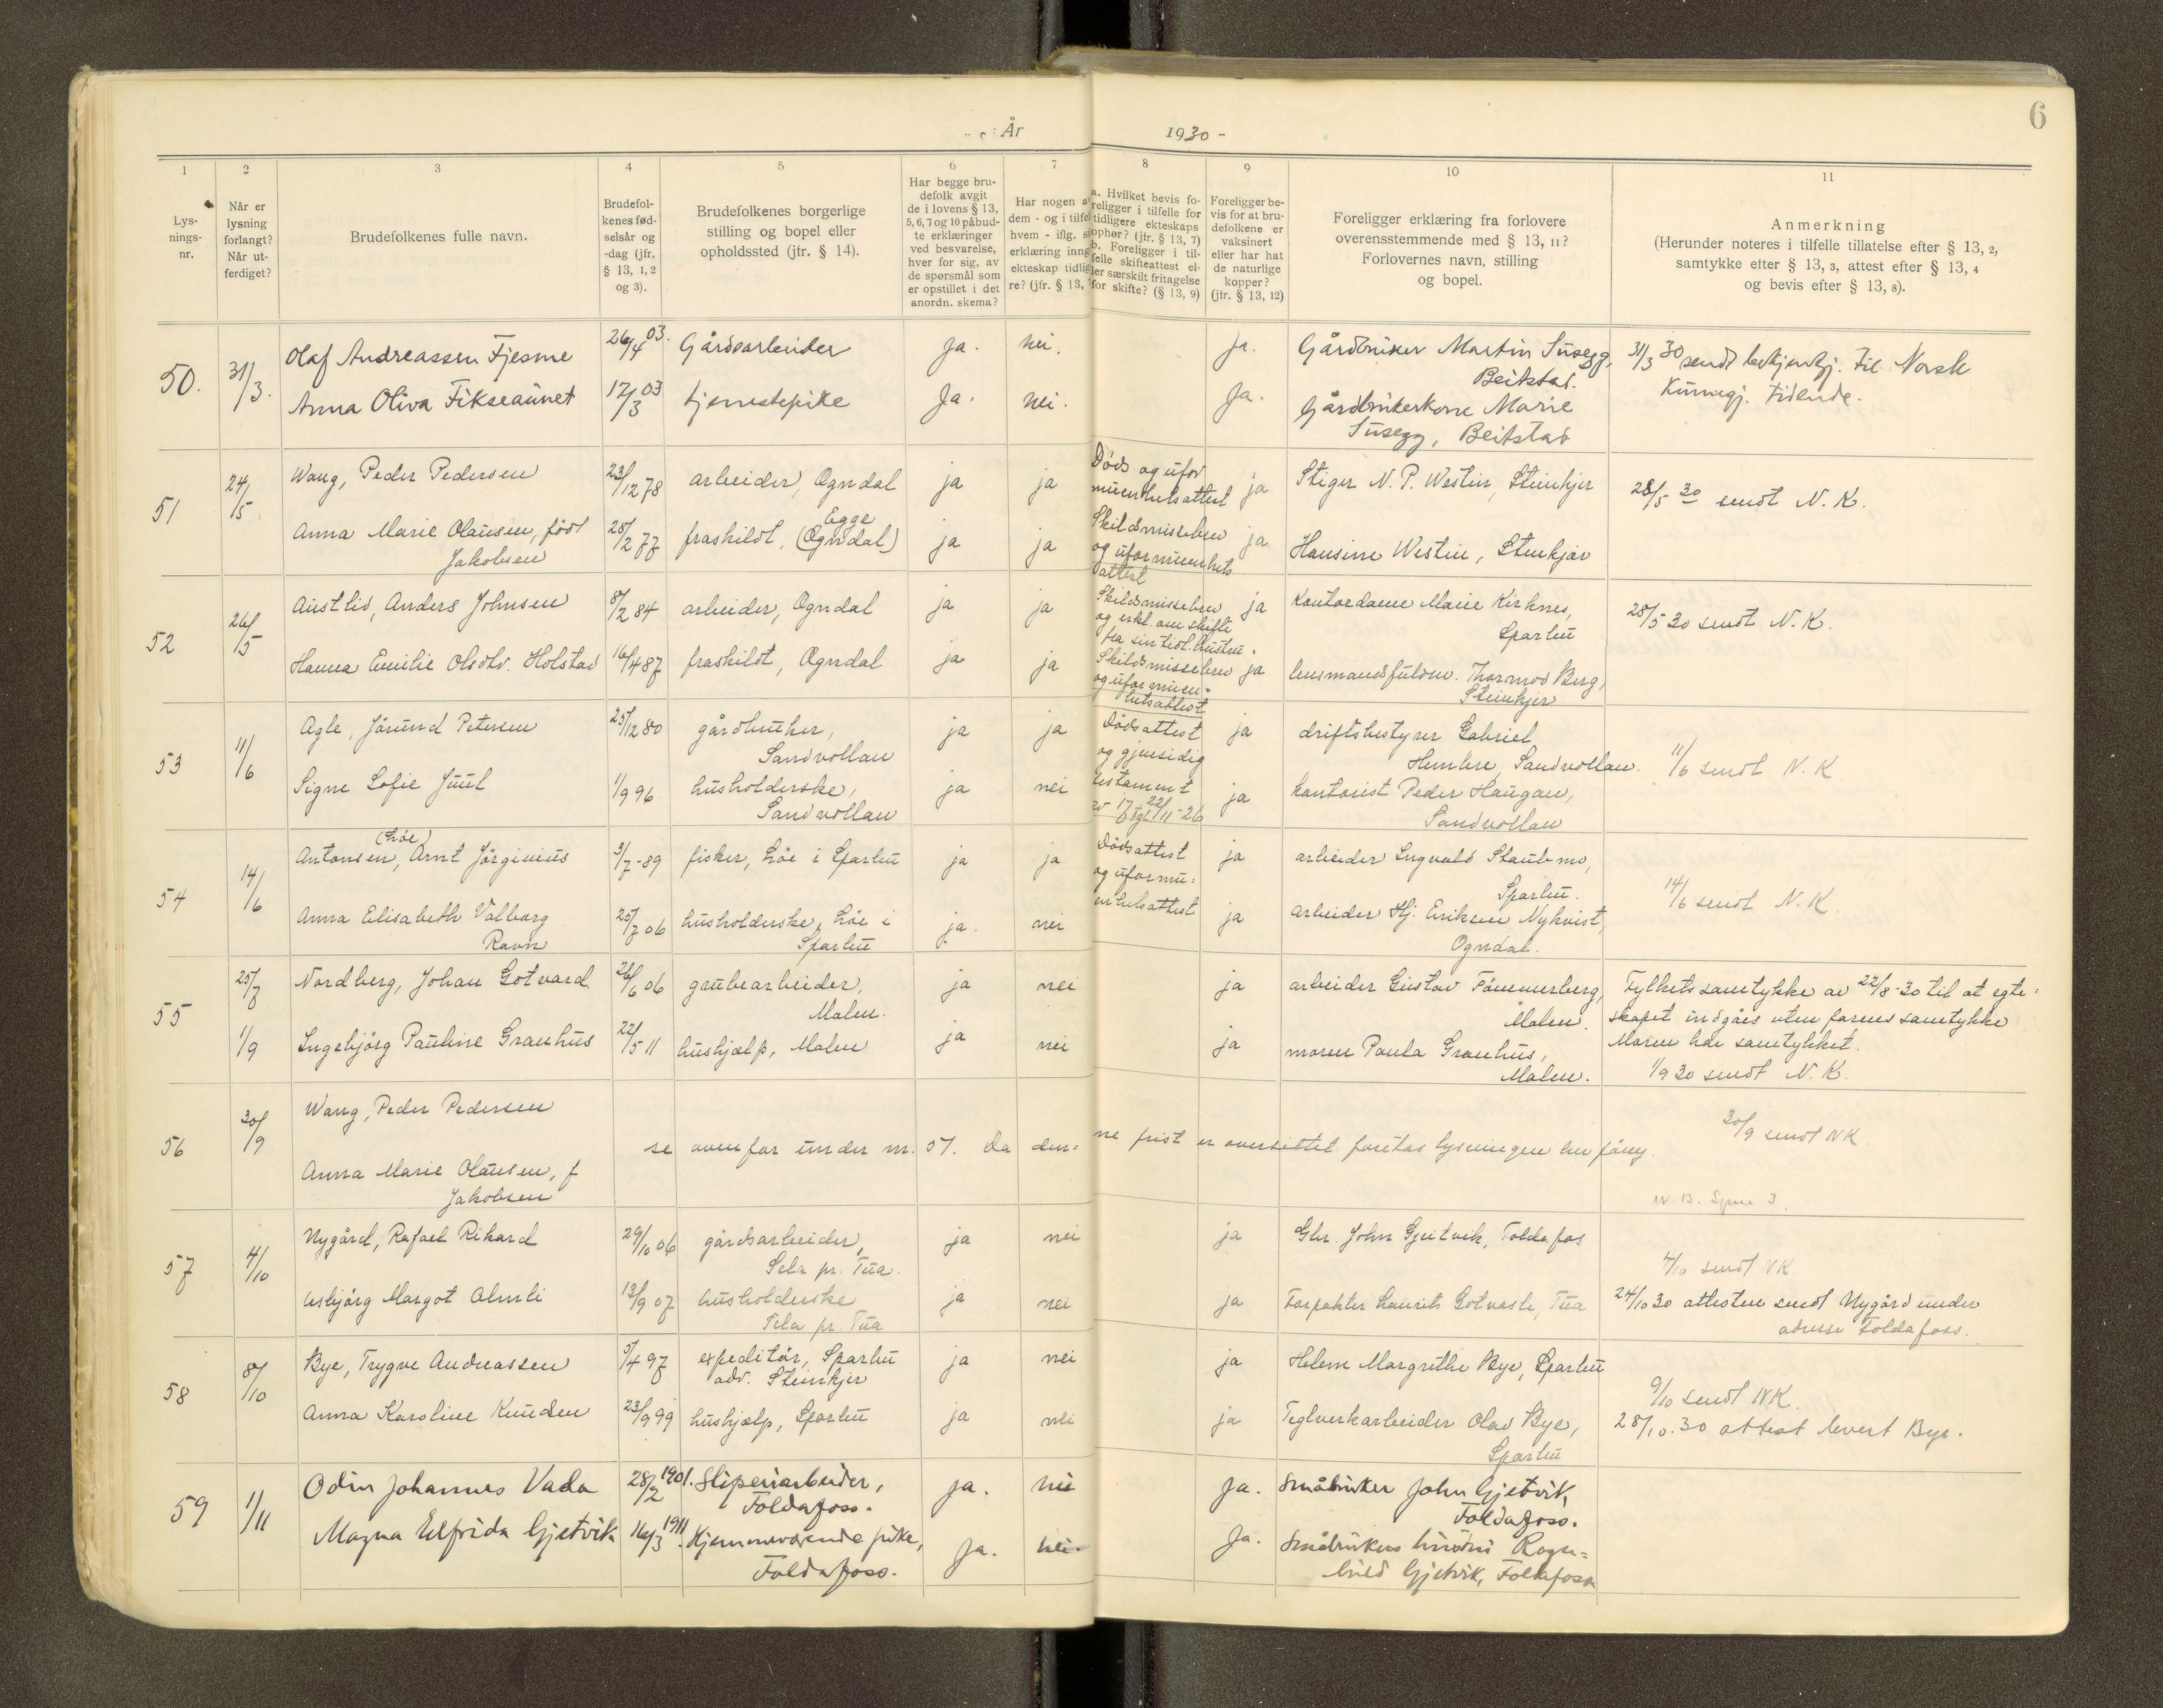 6
År 1930 -
1 2 3 4 5 6 7 8 9 10 11
Lys-
nings-
nr.
Når er
lysning
forlangt?
Når ut-
ferdiget?
Brudefolkenes fulle navn.
Brudefol-
kenes fød-
selsår og
-dag (jfr.
§ 13, 1, 2
og 3).
Brudefolkenes borgerlige
stilling og bopel eller
opholdssted (jfr. § 14).
Har begge bru-
defolk avgit
de i lovens § 13,
5, 6, 7 og 10 påbud-
te erklæringer
ved besvarelse,
hver for sig, av
de spørsmål som
er opstillet i det
anordn. skema?
Har nogen a
dem - og i tilfel
hvem - iflg. s
erklæring inng
ekteskap tidlig
re? (jfr. § 13,
a. Hvilket bevis fo-
religger i tilfelle for
tidligere ekteskaps
ophør? (jfr. § 13, 7)
b. Foreligger i til-
felle skifteattest el-
ler særskilt fritagelse
for skifte? (§ 13, 9)
Foreligger be-
vis for at bru-
defolkene er
vaksinert
eller har hat
de naturlige
kopper?
(jfr. § 13, 12)
Foreligger erklæring fra forlovere
overensstemmende med § 13, 11?
Forlovernes navn, stilling
og bopel.
Anmerkning
(Herunder noteres i tilfelle tillatelse efter § 13, 2,
samtykke efter § 13, 3, attest efter § 13, 4
og bevis efter § 13, 8).
50. 31/3. Olaf Andreassen Fjesme 26/4 03. Gårdsarbeider Ja. nei. Ja. Gårdbruker Martin Susegg,
Beitstad.
31/3 30 sendt bekjentgj. til Norsk
Kunngj. tidende.
Anna Oliva Fikseaunet 17/3 03 tjenestepike Ja. nei. Ja. Gårdbrukerkone Marie
Susegg, Beitstad
51 24/5 Wang, Peder Pedersen 23/12 78 arbeider, Ogndal ja ja Døds og ufor
muenhetsattest ja Stiger N. P. Westin, Steinkjer
28/5 30 sendt N. K.
Anna Marie Olausen, født
Jakobsen 28/2 77 fraskildt, (Ogndal)
Egge
ja ja Skilsmissebrev
og uformuenhets
attest
ja Hansine Westin, Stenkjær
52 26/5 Austlid, Anders Johnsen 8/2 84 arbeider, Ogndal ja ja Skilsmissebrev
og erkl. om skifte
fra sin tidl. hustru.
ja Kontordame Marie Kirknes,
Sparbu
28/5 30 sendt N. K.
Hanna Emilie Olsdtr. Holstad 16/4 87 fraskildt, Ogndal ja ja Skilsmissebrev
og uformuen-
hetsattest
ja lensmandsfuldm. Thormod Berg,
Steinkjer
53 11/6 Agle, Jörund Petersen 25/12 80 gårdbruker,
Sandvollan
ja ja Dödsattest
og gjensidig
testament
av 17 tgl. 22/11-26
ja driftsbestyrer Gabriel
Hembre, Sandvollan.
11/6 sendt N. K.
Signe Sofie Juul 1/9 96 husholderske,
Sandvollan
ja nei ja kontorist Peder Haugan,
Sandvollan
54 14/6 (Løe)
Antonsen, Arnt Jörginius 3/7-89 fisker, Løe i Sparbu ja ja Dödsattest
og uformu-
enhetsattest
ja arbeider Ingvald Staulsmo,
Sparbu.
14/6 sendt N. K.
Anna Elisabeth Valborg
Ravn 25/7 06 husholderske, Løe i
Sparbu
ja. nei ja arbeider Hj. Eriksen Nykvist,
Ogndal.
55 25/7 Nordberg, Johan Gotvard 26/6 06 grubearbeider,
Malm.
ja nei ja arbeider Gustav Fömmerberg,
Malm.
Fylkets samtykke av 22/8-30 til at egte-
skapet indgåes uten farens samtykke
Moren har samtykket.
1/9 30 sendt N. K.
1/9 Ingebjörg Pauline Granhus 22/5 11 hushjælp, Malm ja nei ja moren Paula Granhus,
Malm.
56 30/9 Wang, Peder Pedersen
se ovenfor under nr. 51. Da den-
ne frist er oversittet foretas lysningen her påny.
30/9 sendt NK.
Anna Marie Olausen, f
Jakobsen
57 4/10 Nygård, Rafael Rikard 29/10 06 gårdsarbeider,
Sela pr. Tua.
ja nei ja Gbr. John Gjetvik, Foldafos
4/10 sendt NK.
Asbjörg Margot Almli 13/9 07 husholderske
Sela pr. Tua
ja nei ja Forpakter Laurits Gotvasli, Tua
24/10 30 attesten sendt Nygård under
adresse Foldafoss.
58 8/10 Bye, Trygve Andreassen 5/4 97 expeditör, Sparbu
adr. Steinkjer
ja nei ja Helene Margrethe Bye, Sparbu
9/10 sendt NK.
Anna Karoline Knudsen 23/9 99 hushjælp, Sparbu ja nei ja Teglverkarbeider Olav Bye,
Sparbu
28/10.30 attest levert Bye.
59 1/11 Odin Johannes Vada 28/2 1901. Sliperiarbeider,
Foldafoss.
Ja. nei Ja. Småbruker John Gjetvik,
Foldafoss.
Magna Elfrida Gjetvik 16/3 1911. Hjemmeværende pike,
Foldafoss.
Ja. nei Ja. Småbrukers hustru Ragn-
hild Gjetvik, Foldafoss